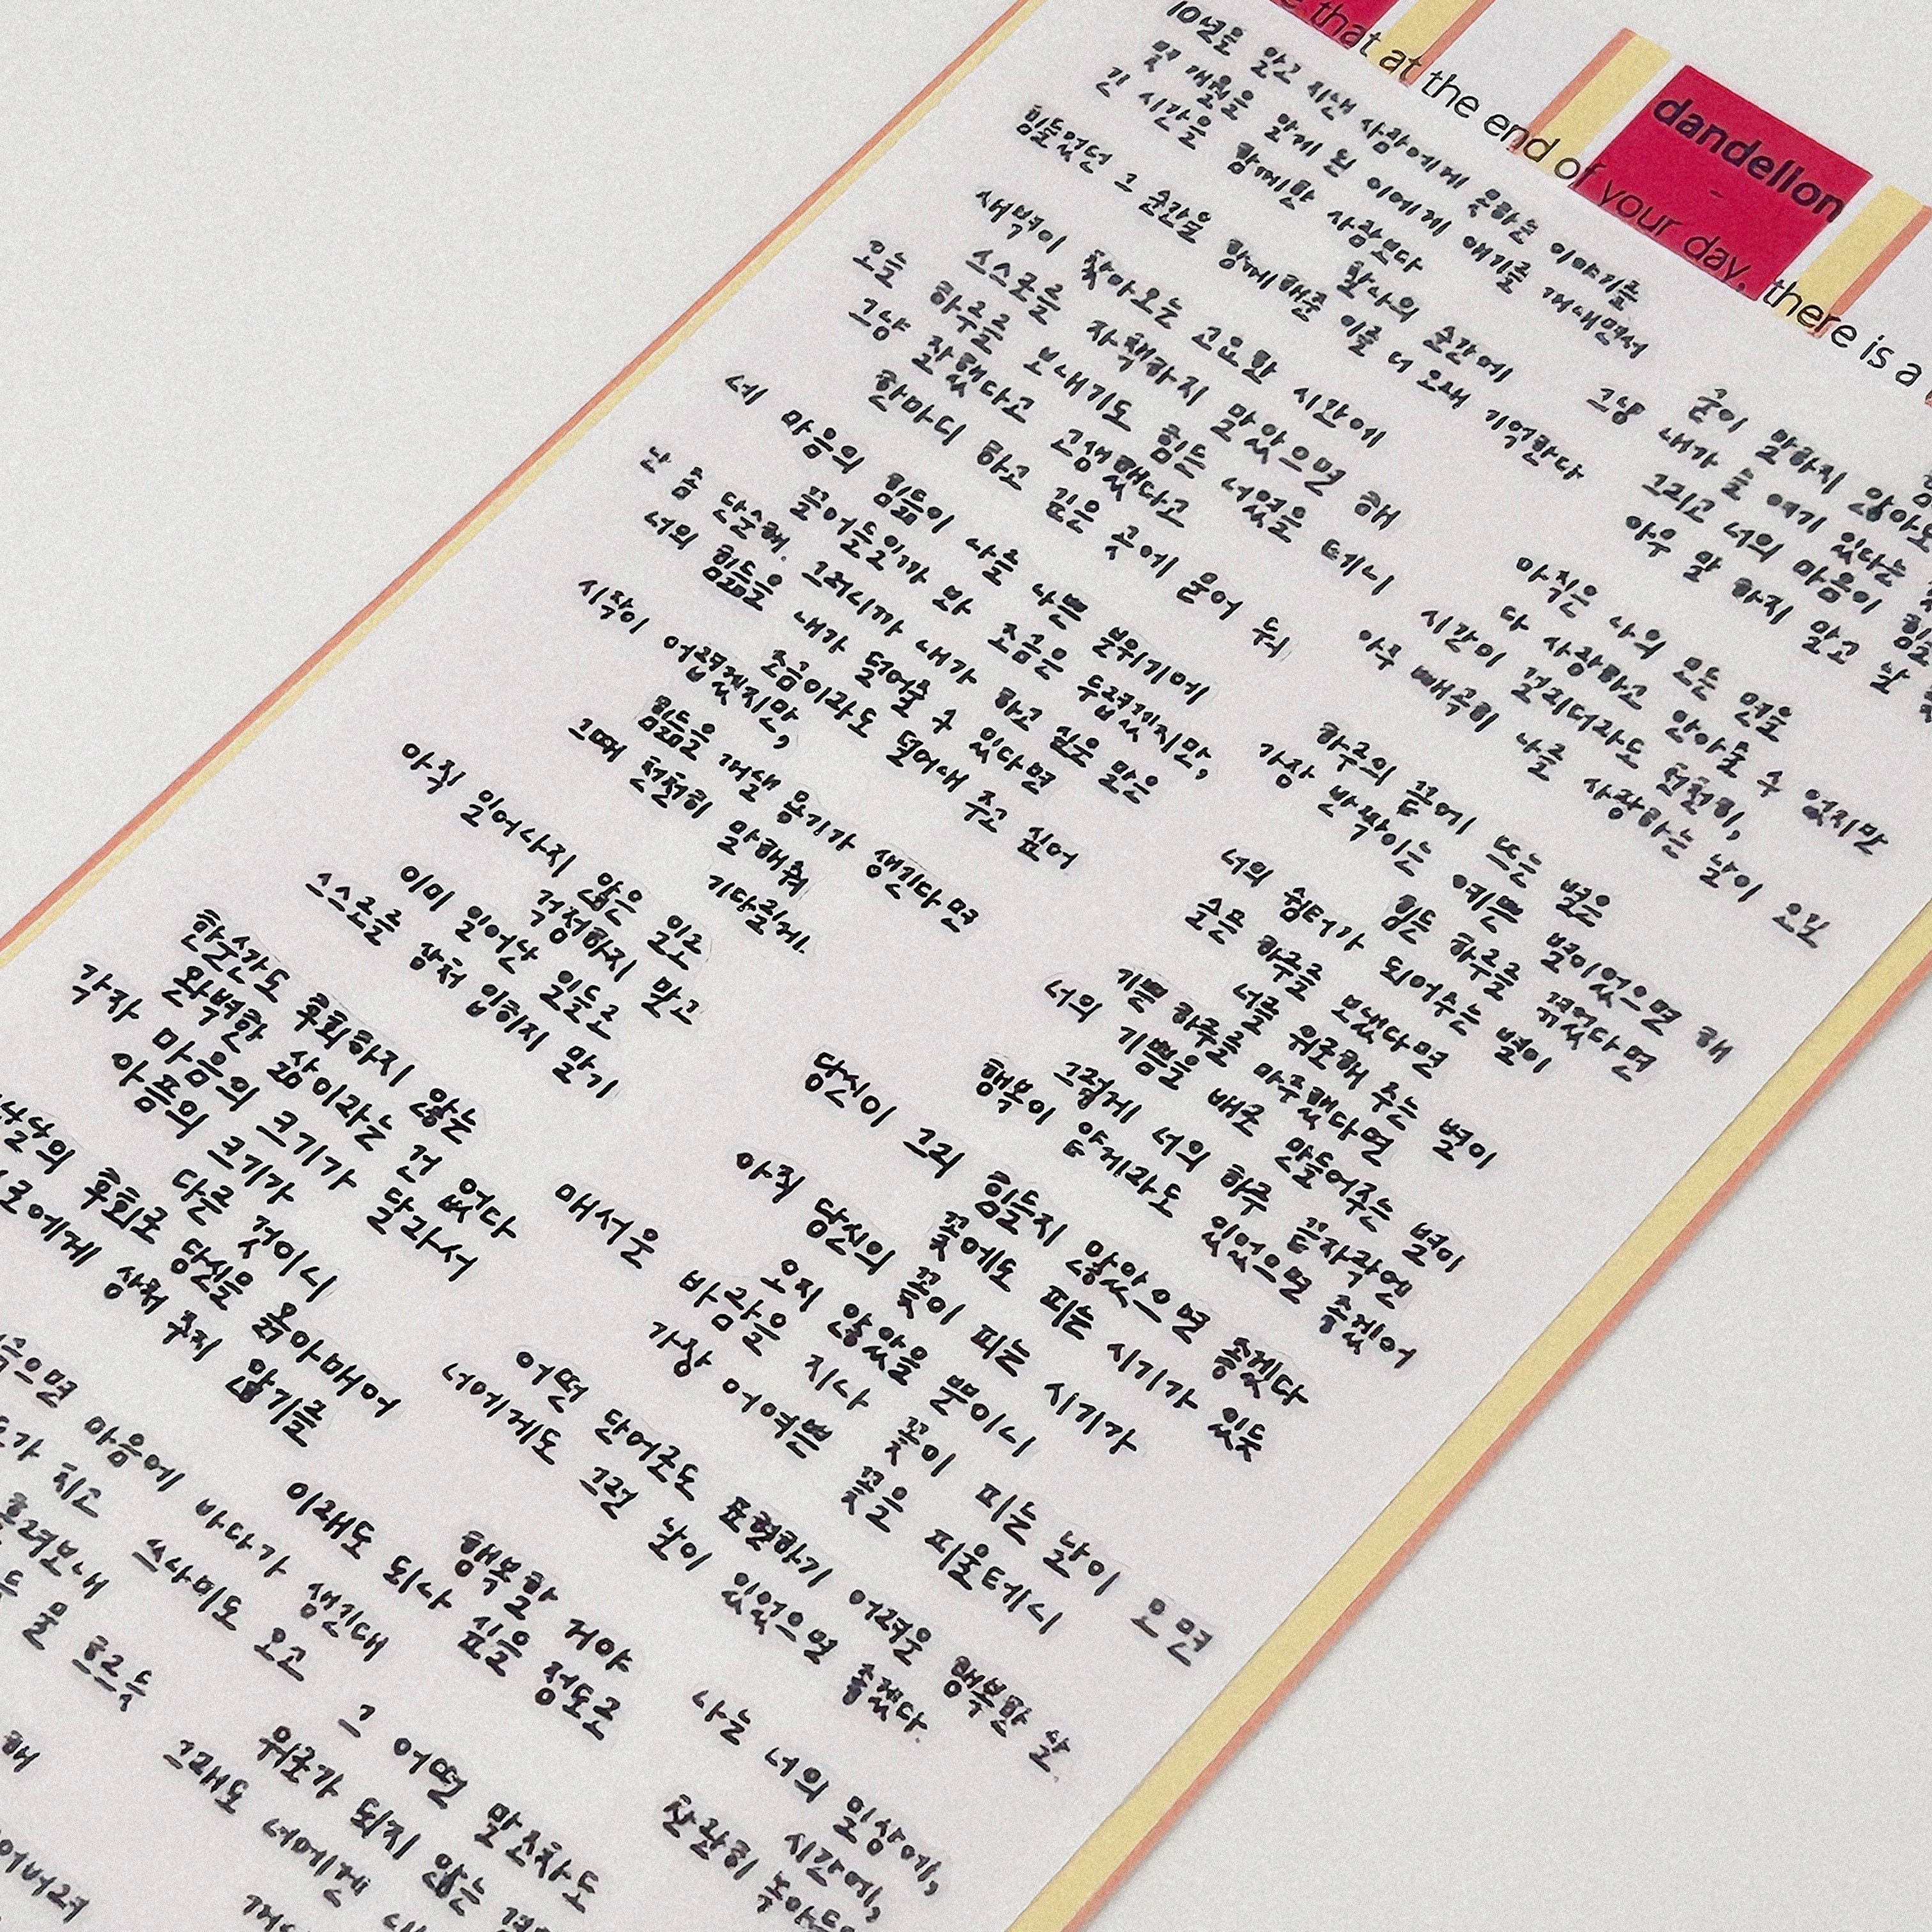 dandelion
that at the end of your day, there is a
10년을 알고 지낸 사람에게 못하는 이야기를
몇 개월을 알게 된 이에게 얘기를 꺼내면서
긴 시간을 함께한 사람보다
찰나의 순간에
힘들었던 그 순간을 함께해준 이를 더 오래 기억한다
새벽이 찾아오는 고요한 시간에
스스로를 자책하지 말았으면 해
오늘 하루를 보내기도 힘든 너였을 테니
그냥 잘했다고 고생했다고
한마디 하고 깊은 곳에 묻어 둬
네 마음의 힘듦이 나를 나쁜 분위기에
물어들일까 봐 조금은 두렵겠지만,
난 좀 단순해. 그러니까 내가 하고 싶은 말은
너의 힘듦을 내가 덜어줄 수 있다면
조금이라도 덜어내 주고 싶어
시작이 어렵겠지만,
힘듦을 꺼낼 용기가 생긴다면
그때 천천히 말해줘
기다릴게.
아직 일어나지 않은 일로
걱정하지 말고
이미 일어난 일들로
스스로를 상처 입히지 말기
한순간도 후회하지 않는
완벽한 삶이라는 건 없다
각자 마음의 크기가 달라서
아픔의 크기가
다를 것이니
후회로 당신을 옭아매어
상처 주지 않기를
마음에 바다가 생긴대
가 치고 쓰나미도 오고
흘려보내
굳이 말하지 않아도
그냥 내가 늘 여기 있다는
그리고 너의 마음이
아무 말 하지 말고
아직은 나의 모든 면을
다 사랑하고 안아줄 수 없지만
시간이 걸리더라도 천천히,
아주 빼곡히 나를 사랑하는 날이 오길
하루의 끝에 뜨는 별은
가장 반짝이는 예쁜 별이었으면 해
힘든 하루를 겪었다면
너의 쉼터가 되어주는 별이
슬픈 하루를 보냈다면
너를 위로해 주는 별이
기쁜 하루를 마주했다면
너의 기쁨을 배로 만들어주는 별이
그렇게 너의 하루 끝자락엔
행복이 함께라도 있었으면 좋겠어
당신이 그리 힘들지 않았으면 좋겠다
꽃에도 피는 시기가 있듯
아직 당신의 꽃이 피는 시기가
오지 않았을 뿐이니
매서운 바람을 지나 꽃이 피는 날이 오면
가장 어여쁜 꽃을 피울테니
어떤 단어로도 표현하기 어려운 행복한 날.
너에게도 그런 날이 있었으면 좋겠다.
행복할 거야
이래도 되나 싶을 정도로
나는 너의 일상에,
시간에,
찬란히
그 어떤 말조차도
위로가 되지 않는
그래도 너에겐